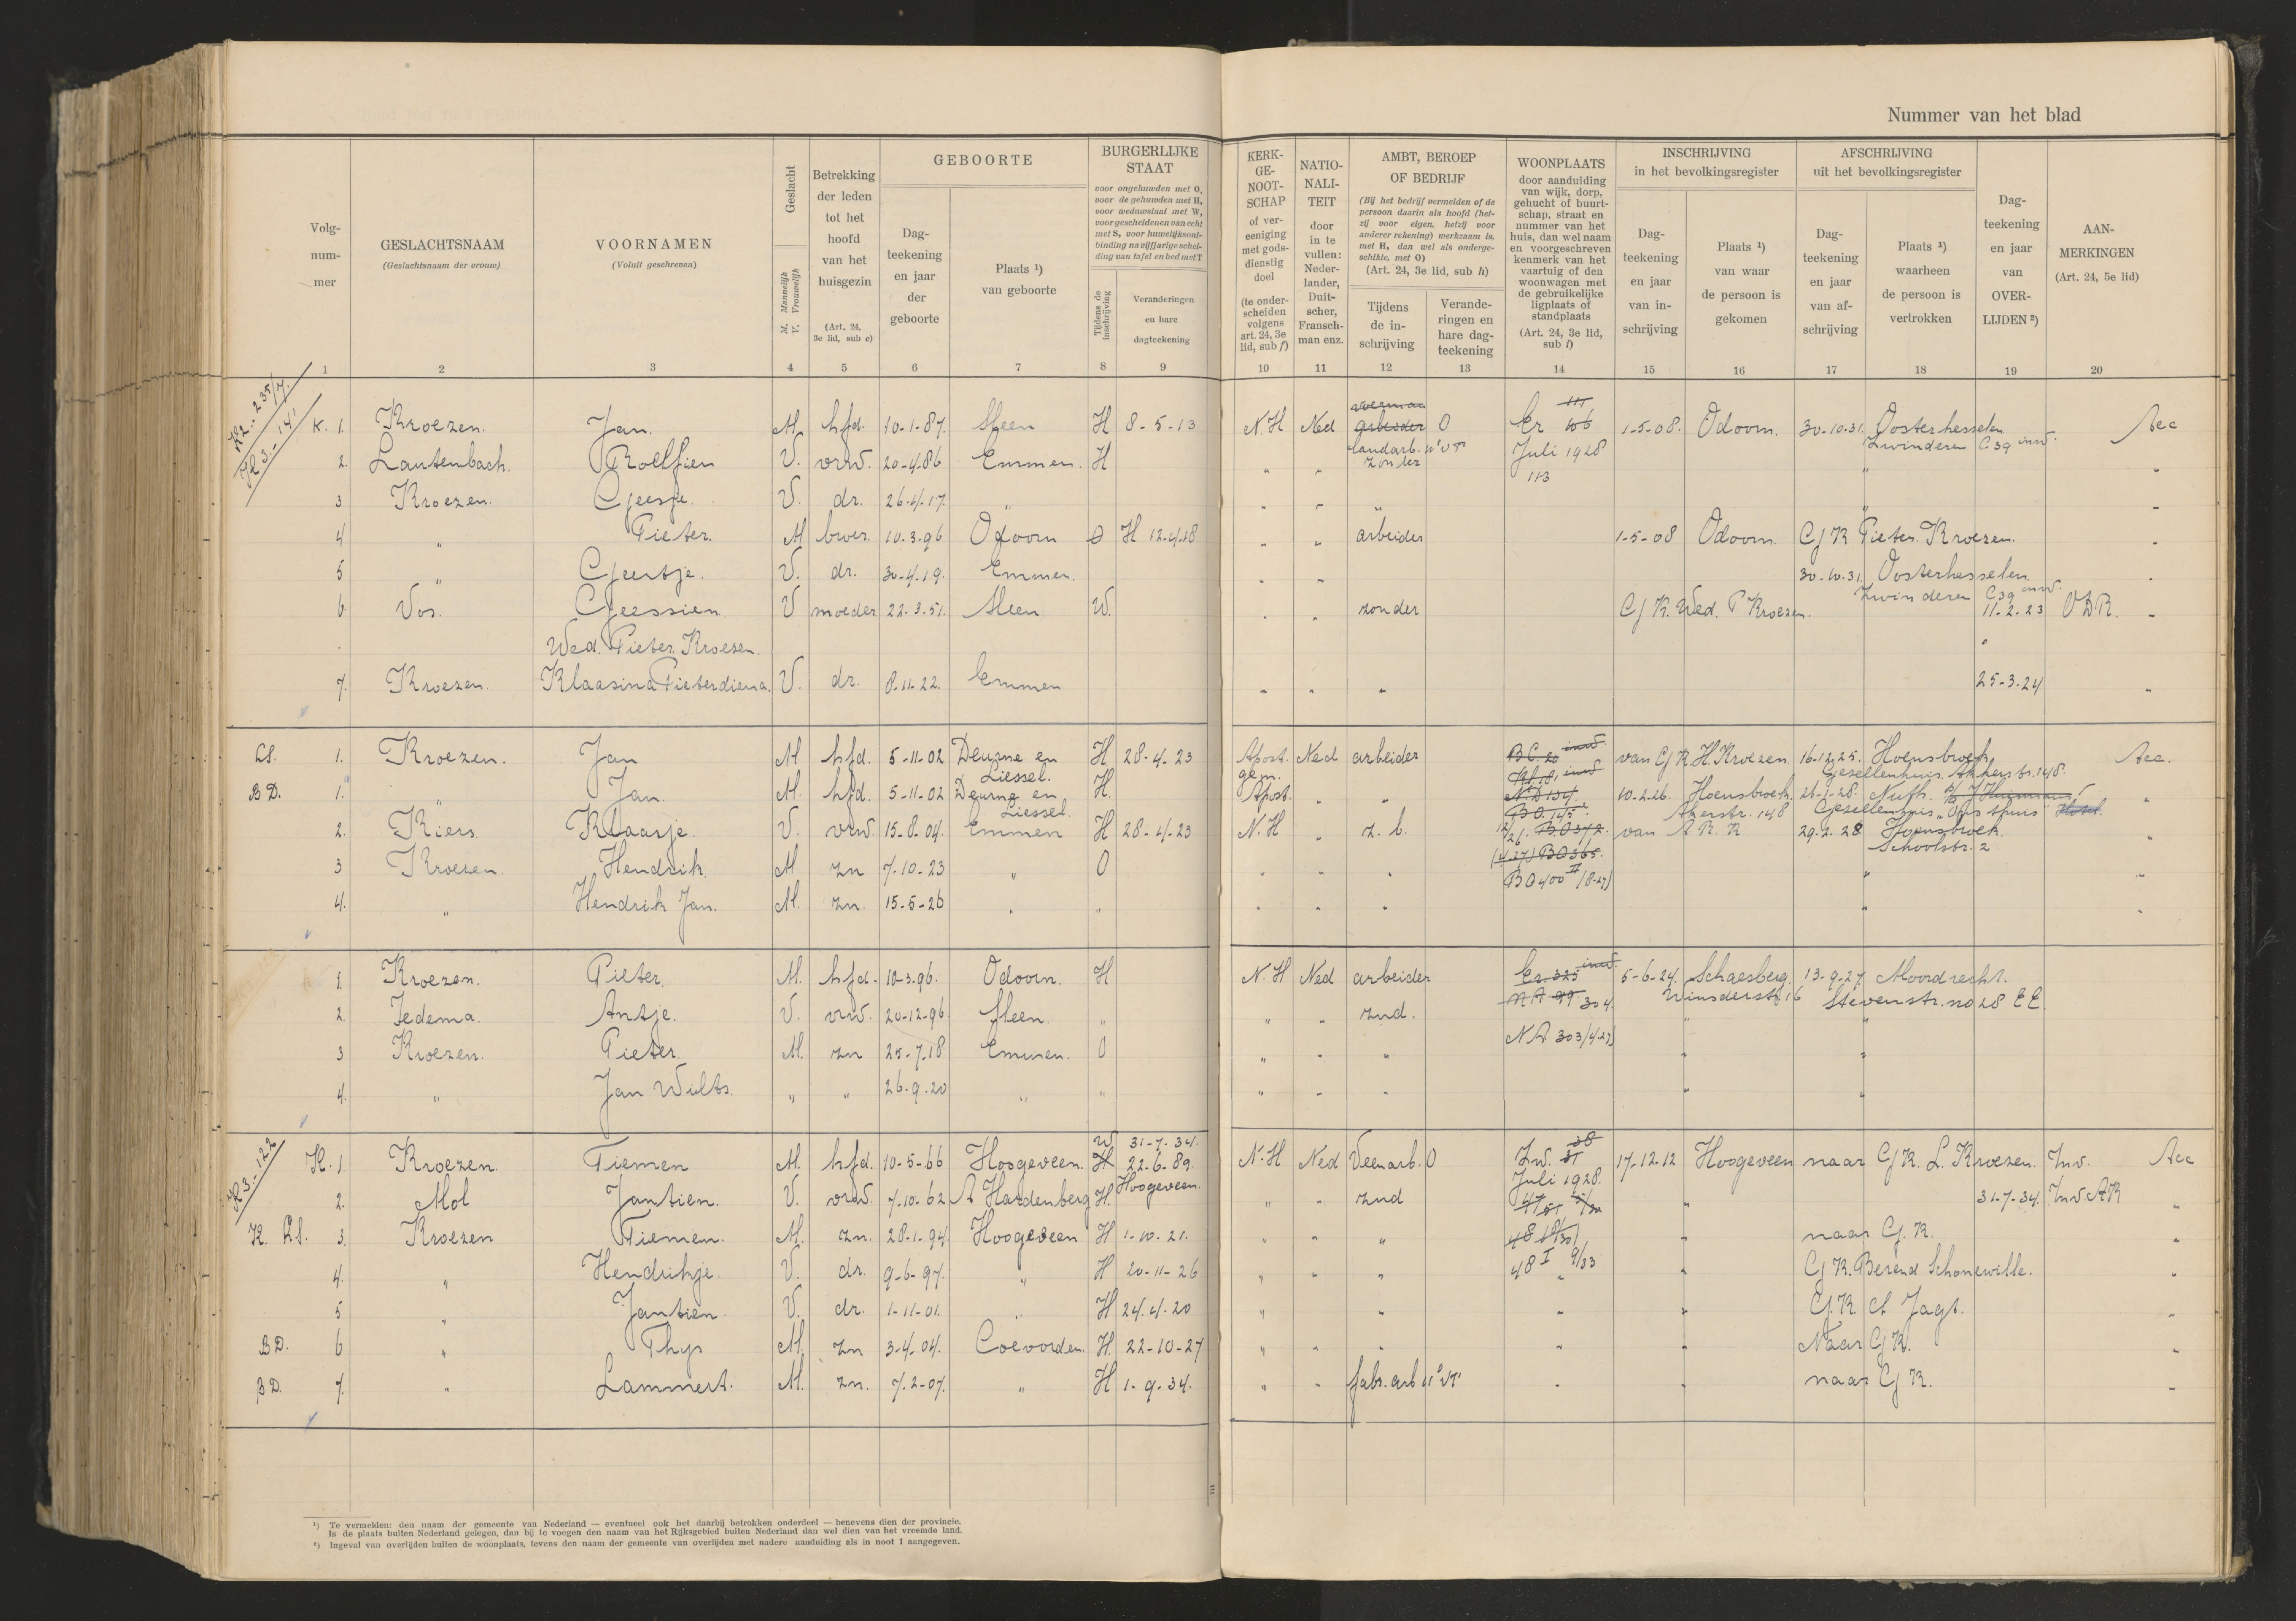 Nummer van het blad
Volg-
num-
mer
GESLACHTSNAAM
(Geslachtsnaam der vrouw)
VOORNAMEN
(Voluit geschreven)
Geslacht
M. Mannelijk
V. Vrouwelijk
Betrekking
der leden
tot het
hoofd
van het
huisgezin
(Art. 24,
3e lid, sub c)
GEBOORTE
Dag-
teekening
en jaar
der
geboorte
Plaats ¹)
van geboorte
BURGERLIJKE
STAAT
voor ongehuwden met O,
voor de gehuwden met H,
voor weduwstaat met W,
voor gescheidenen van echt
met S, voor huwelijksont-
binding na vijfjarige schei-
ding van tafel en bed met T
Tijdens de
inschrijving
Veranderingen
en hare
dagteekening
KERK-
GE-
NOOT-
SCHAP
of ver-
eeniging
met gods-
dienstig
doel
(te onder-
scheiden
volgens
art. 24, 3e
lid, sub f)
NATIO-
NALI-
TEIT
door
in te
vullen:
Neder-
lander,
Duit-
scher,
Fransch-
man enz.
AMBT, BEROEP
OF BEDRIJF
(Bij het bedrijf vermelden of de
persoon daarin als hoofd (het-
zij voor eigen, hetzij voor
anderer rekening) werkzaam is,
met H, dan wel als onderge-
schikte, met O)
(Art. 24, 3e lid, sub h)
Tijdens
de in-
schrijving
Verande-
ringen en
hare dag-
teekening
WOONPLAATS
door aanduiding
van wijk, dorp,
gehucht of buurt-
schap, straat en
nummer van het
huis, dan wel naam
en voorgeschreven
kenmerk van het
vaartuig of den
woonwagen met
de gebruikelijke
ligplaats of
standplaats
(Art. 24, 3e lid,
sub i)
INSCHRIJVING
in het bevolkingsregister
Dag-
teekening
en jaar
van in-
schrijving
Plaats ¹)
van waar
de persoon is
gekomen
AFSCHRIJVING
uit het bevolkingsregister
Dag-
teekening
en jaar
van af-
schrijving
Plaats ¹)
waarheen
de persoon is
vertrokken
Dag-
teekening
en jaar
van
OVER-
LIJDEN ²)
AAN-
MERKINGEN
(Art. 24, 5e lid)
1 2 3 4 5 6 7 8 9 10 11 12 13 14 15 16 17 18 19 20
K2. 235/7.
K3. 141
K. 1. Kroezen. Jan. M. hfd. 10-1-87. Sleen H 8-5-13 N.H Ned arbeider O Er 1-5-08. Odoorn. 30-10-31. Oosterhesselen
landarb. Zwinderen C39 inw.
2. Lautenbach. Roelfien V. vrw. 20-4-86 Emmen. H " " zonder Juli 1928 "
113
3 Kroezen. Geesje. V. dr. 26-4-17. " " " " "
4 " Pieter. M broer. 10.3.96 Odoorn O H 12-4-18 " " arbeider 1-5-08 Odoorn. GK Pieter Kroezen.
5 " Geertje. V. dr. 30-4-19. Emmen. " " 30-10-31. Oosterhesselen
Zwinderen C39 inw.
6 Vos. Geessien V moeder 22.3.51. Sleen W. " " zonder GK. Wed. P Kroezen. 11-2-23 O.D.R.
Wed. Pieter Kroezen.
7. Kroezen. Klaasina Pieterdiena. V. dr. 8-11-22. Emmen " " " 25-3-24
1. Kroezen. Jan M hfd. 5-11-02 Deurne en H 28-4-23 Apost. Ned arbeider BC 20 inw. van GK H Kroezen 16-12-25. Hoensbroek
Liessel. gem. Gezellenhuis. Akkerstr. 148.
BD. 1. " Jan. M. hfd. 5-11-02 Deurne en H. Apost. " " ND 134. 10-2-26. Hoensbroek 21-1-28. Nuth.
Liessel. BO. 145 Akerstr. 148 Gezellenhuis
2. Kiers. Klaasje. V. vrw 15-8-04. Emmen H 28-4-23 N.H " z. b. BO 372. van 29-2-28 Hoensbroek.
Schoolstr. 2
3 Kroezen. Hendrik. M zn 7-10-23 " O " " " (4-27) BO 365. "
BO 400 II (8-27)
4. " Hendrik Jan. M. zn. 15-5-26 " " " " " "
1. Kroezen. Pieter. M. hfd. 10-3-96. Odoorn. H N.H Ned arbeider Er. 325 inw. 5-6-24. Schaesberg. 13-9-27 Moordrecht.
304 Stevenstr. no 28 EE.
2. Jedema. Antje. V. vrw. 20-12-96. Sleen. " " " znd. " "
3 Kroezen. Pieter. M. zn 25-7-18 Emmen. O " " " NA 303 (4-27) " "
4. " Jan Wilts. " " 26-9-20 " " " " " " "
K3. 122
K. 1. Kroezen. Tiemen M. hfd. 10-5-66 Hoogeveen. W 31-7-34. N.H Ned Veenarb. O Zw. 17-12-12 Hoogeveen naar GK. L. Kroezen. Inw.
H 22-6-89. Juli 1928.
Hoogeveen.
2. Mol Jantien. V. vrw. 7-10-62 A Hardenberg H. " " znd " 31-7-34. Inw. AK
K. 3. Kroezen Tiemen. M. zn. 28-1-94. Hoogeveen H 1-10-21. " " " " naar GK.
4. " Hendrikje. V. dr. 9-6-97. " H 20-11-26 " " " 48 I 9/33 " GK. Berend Schonewille.
5 " Jantien. V. dr. 1-11-01. " H 24-4-20 " " " " " GK. A Jagt.
BD. 6 " Thijs M. zn 3-4-04. Coevorden. H. 22-10-27 " " " " " Naar GK.
BD. 7. " Lammert. M. zn. 7-2-07. " H 1-9-34. " " fabr. arb " " naar GK.
¹) Te vermelden: den naam der gemeente van Nederland — eventueel ook het daarbij betrokken onderdeel — benevens dien der provincie.
Is de plaats buiten Nederland gelegen, dan bij te voegen den naam van het Rijksgebied buiten Nederland dan wel dien van het vreemde land.
²) Ingeval van overlijden buiten de woonplaats, tevens den naam der gemeente van overlijden met nadere aanduiding als in noot 1 aangegeven.